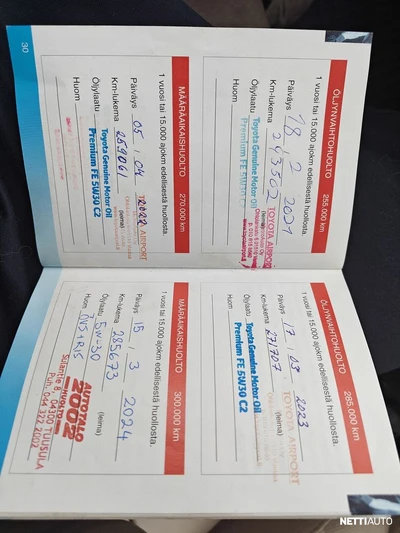 ÖLJYNVAIHTOHUOLTO 255.000 km
1 vuosi tai 15.000 ajokm edellisestä huollosta.
Päiväys 18 . 2 2021
Km-lukema 243502
Öljylaatu Toyota Genuine Motor Oil
Premium FE 5W30 C2
(leima)
TOYOTA AIRPORT
Huom
MÄÄRÄAIKAISHUOLTO 270.000 km
1 vuosi tai 15.000 ajokm edellisestä huollosta.
Päiväys 05 . 04 2022
Km-lukema 259061
Öljylaatu Toyota Genuine Motor Oil
Premium FE 5W30 C2
(leima)
TOYOTA AIRPORT
Huom
30
ÖLJYNVAIHTOHUOLTO 285.000 km
1 vuosi tai 15.000 ajokm edellisestä huollosta.
Päiväys 17 . 03 2023
Km-lukema 271707
Öljylaatu Toyota Genuine Motor Oil
Premium FE 5W30 C2
TOYOTA AIRPORT
Huom
MÄÄRÄAIKAISHUOLTO 300.000 km
1 vuosi tai 15.000 ajokm edellisestä huollosta.
Päiväys 15 . 3 2024
Km-lukema 285673
Öljylaatu 5W-30 (leima)
Huom
AUTOTALO
2002
HUOLTO
Sulantie 8, 04300 TUUSULA
Puh. 044 322 2002
NETTIAUTO